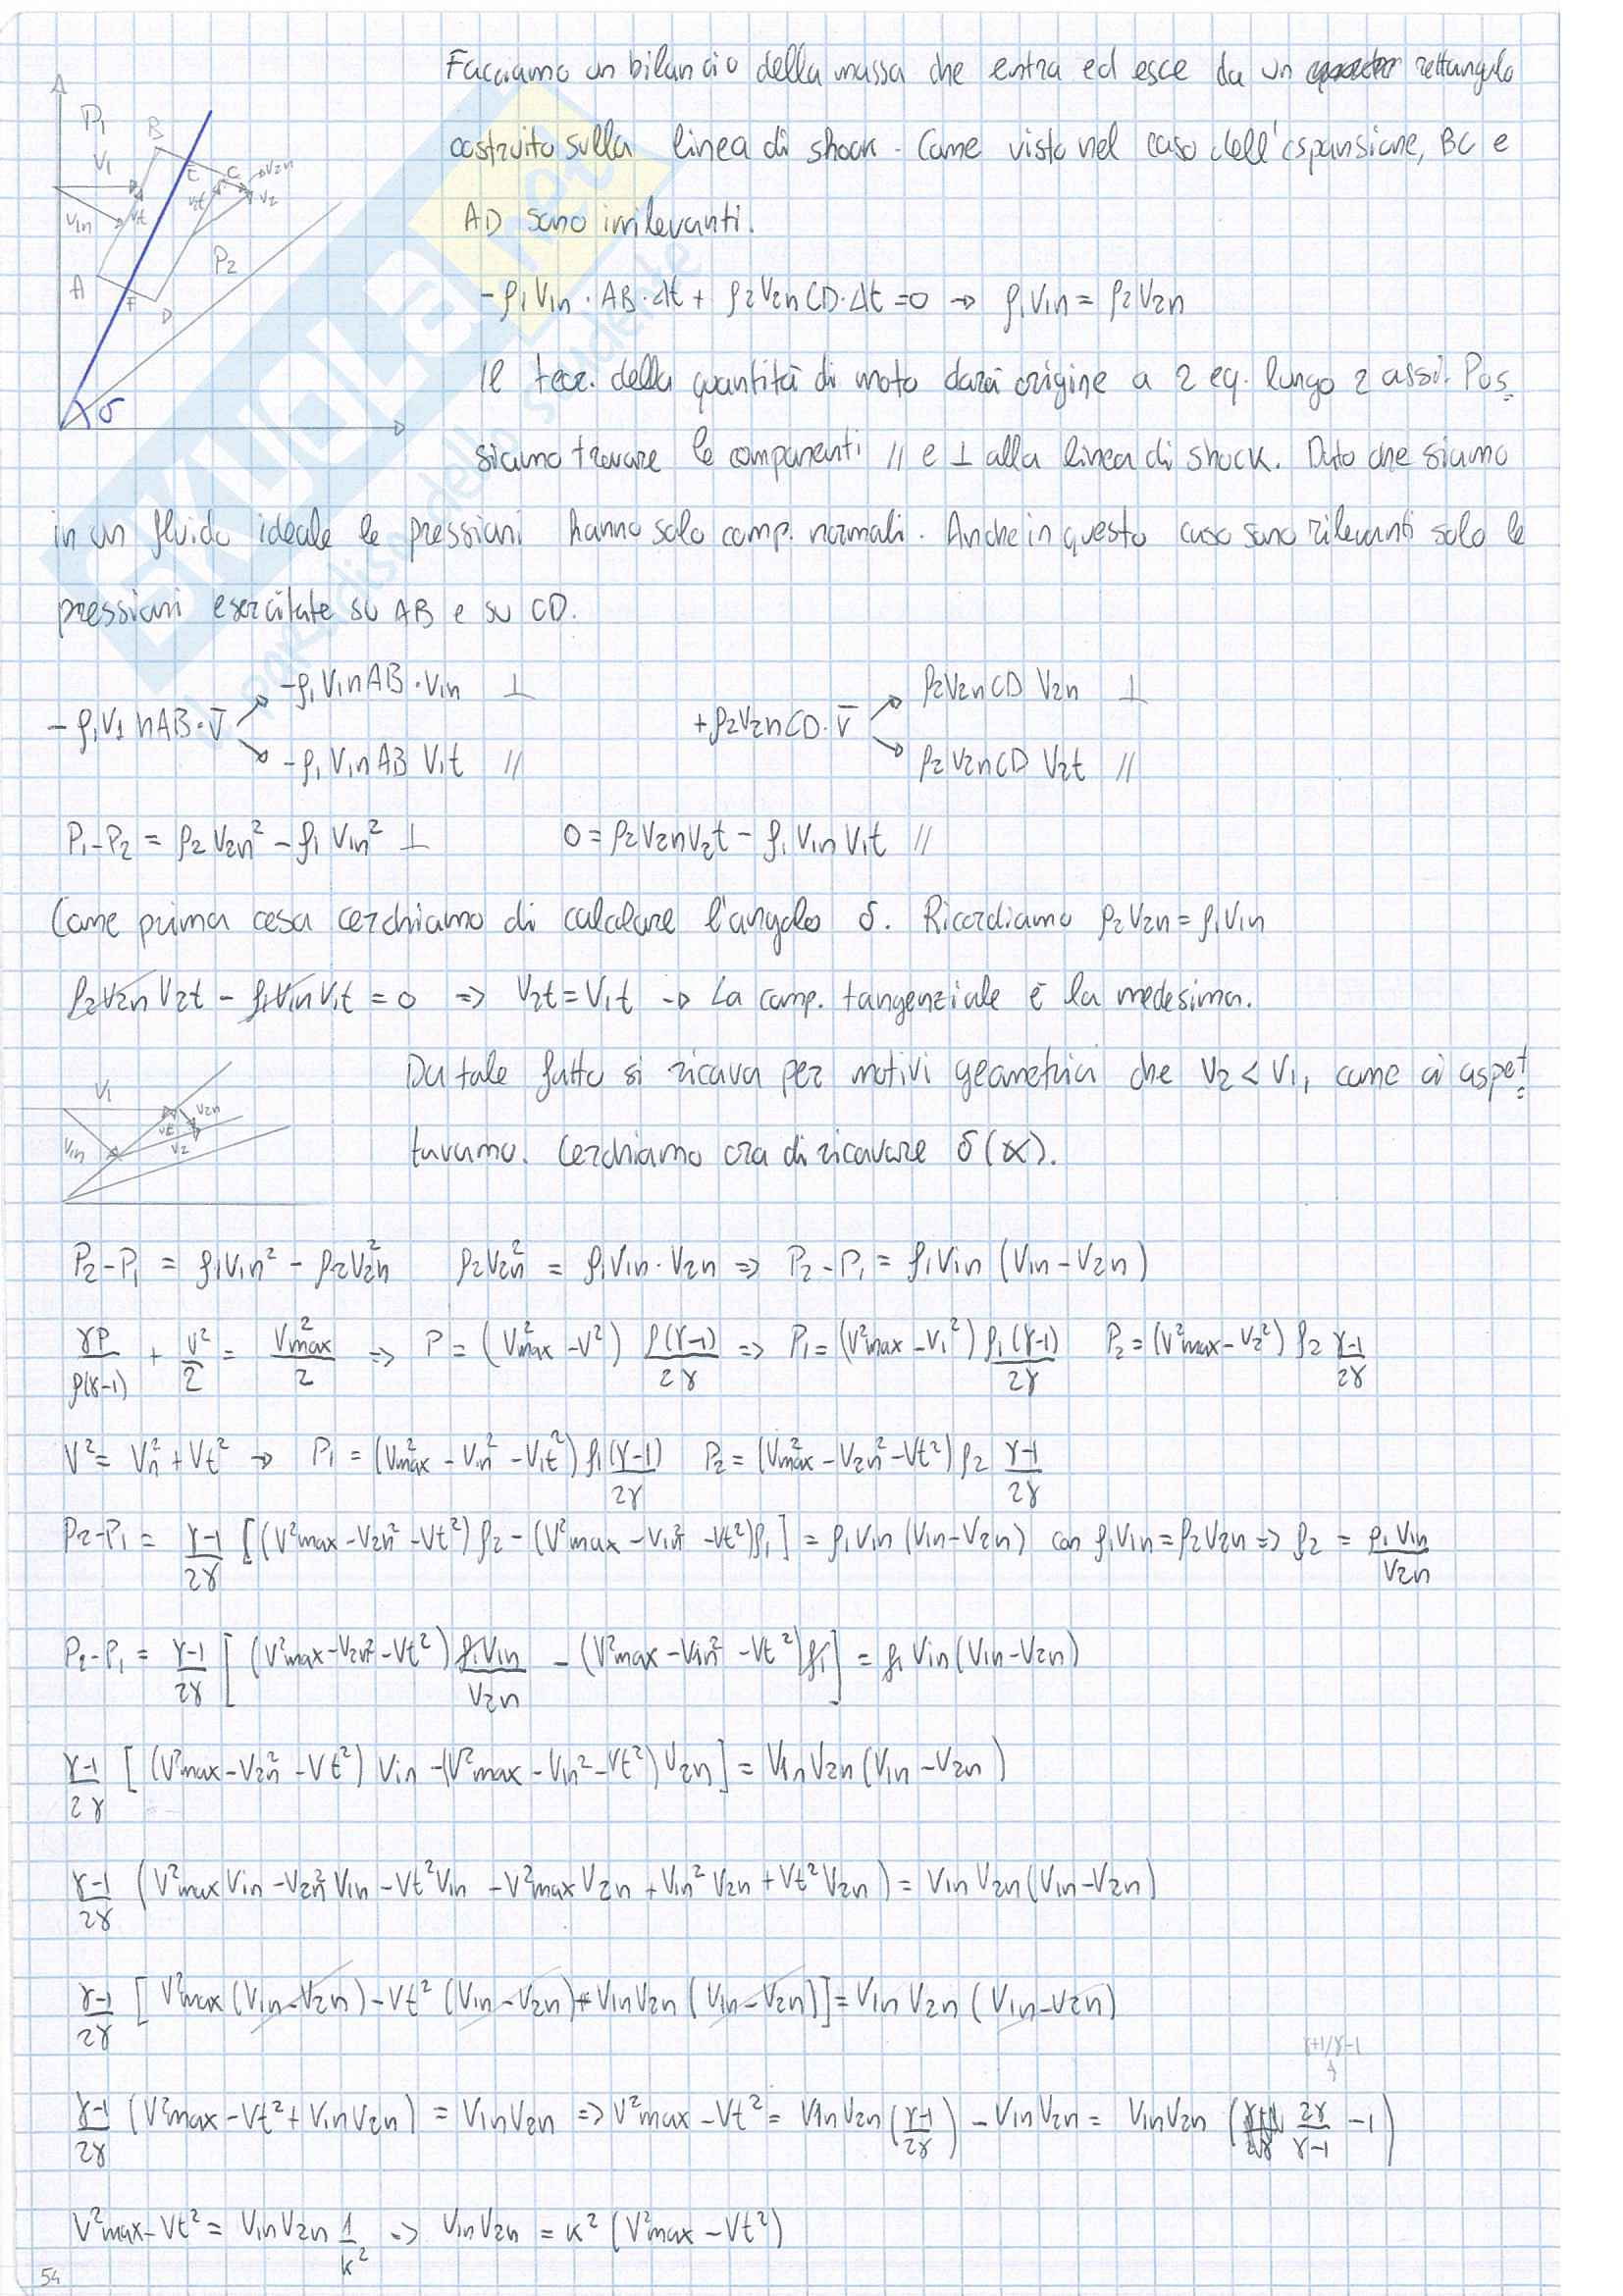 Facciamo un bilancio della massa che entra ed esce da un rettangolo
costruito sulla linea di shock. Come visto nel caso dell'espansione, BC e
AD sono irrilevanti.
P1 B V1 E C V2n V2t V2 V1n Vt P2 A F D δ
-ρ1V1n·AB·Δt + ρ2V2nCD·Δt = 0 → ρ1V1n = ρ2V2n
Il teor. della quantità di moto darà origine a 2 eq. lungo 2 assi. Pos
siamo trovare le componenti // e ⊥ alla linea di shock. Dato che siamo
in un fluido ideale le pressioni hanno solo comp. normali. Anche in questo caso sono rilevanti solo le
pressioni esercitate su AB e su CD.
-ρ1V1nAB·V̄ → -ρ1V1nAB·V1n ⊥ +ρ2V2nCD·V̄ → ρ2V2nCD V2n ⊥
→ -ρ1V1nAB V1t // → ρ2V2nCD V2t //
P1-P2 = ρ2V2n² - ρ1V1n² ⊥ 0 = ρ2V2nV2t - ρ1V1nV1t //
Come prima cosa cerchiamo di calcolare l'angolo δ. Ricordiamo ρ2V2n = ρ1V1n
ρ2V2nV2t - ρ1V1nV1t = 0 => V2t = V1t → La comp. tangenziale è la medesima.
V1 V2n Vt V2 V1n
Da tale fatto si ricava per motivi geometrici che V2 < V1, come ci aspet
tavamo. Cerchiamo ora di ricavare δ(α).
P2-P1 = ρ1V1n² - ρ2V2n² ρ2V2n² = ρ1V1n·V2n => P2-P1 = ρ1V1n (V1n-V2n)
γP/ρ(γ-1) + V²/2 = V²max/2 => P = (V²max-V²) ρ(γ-1)/2γ => P1 = (V²max-V1²) ρ1(γ-1)/2γ P2 = (V²max-V2²) ρ2 γ-1/2γ
V² = Vn² + Vt² → P1 = (V²max - V1n² - V1t²) ρ1(γ-1)/2γ P2 = (V²max - V2n² - Vt²) ρ2 γ-1/2γ
P2-P1 = γ-1/2γ [(V²max - V2n² - Vt²) ρ2 - (V²max - V1n² - Vt²)ρ1] = ρ1V1n (V1n-V2n) con ρ1V1n = ρ2V2n => ρ2 = ρ1V1n/V2n
P2-P1 = γ-1/2γ [(V²max-V2n²-Vt²) ρ1V1n/V2n - (V²max-V1n²-Vt²)ρ1] = ρ1V1n(V1n-V2n)
γ-1/2γ [(V²max-V2n²-Vt²) V1n -(V²max-V1n²-Vt²)V2n] = V1nV2n (V1n-V2n)
γ-1/2γ (V²maxV1n - V2n²V1n - Vt²V1n - V²maxV2n + V1n²V2n + Vt²V2n) = V1nV2n(V1n-V2n)
γ-1/2γ [V²max(V1n-V2n) - Vt²(V1n-V2n) + V1nV2n(V1n-V2n)] = V1nV2n (V1n-V2n)
γ+1/γ-1
γ-1/2γ (V²max-Vt²+V1nV2n) = V1nV2n => V²max-Vt² = V1nV2n (γ-1/2γ) - V1nV2n = V1nV2n (2γ/γ-1 - 1)
V²max-Vt² = V1nV2n 1/k² => V1nV2n = k² (V²max-Vt²)
54